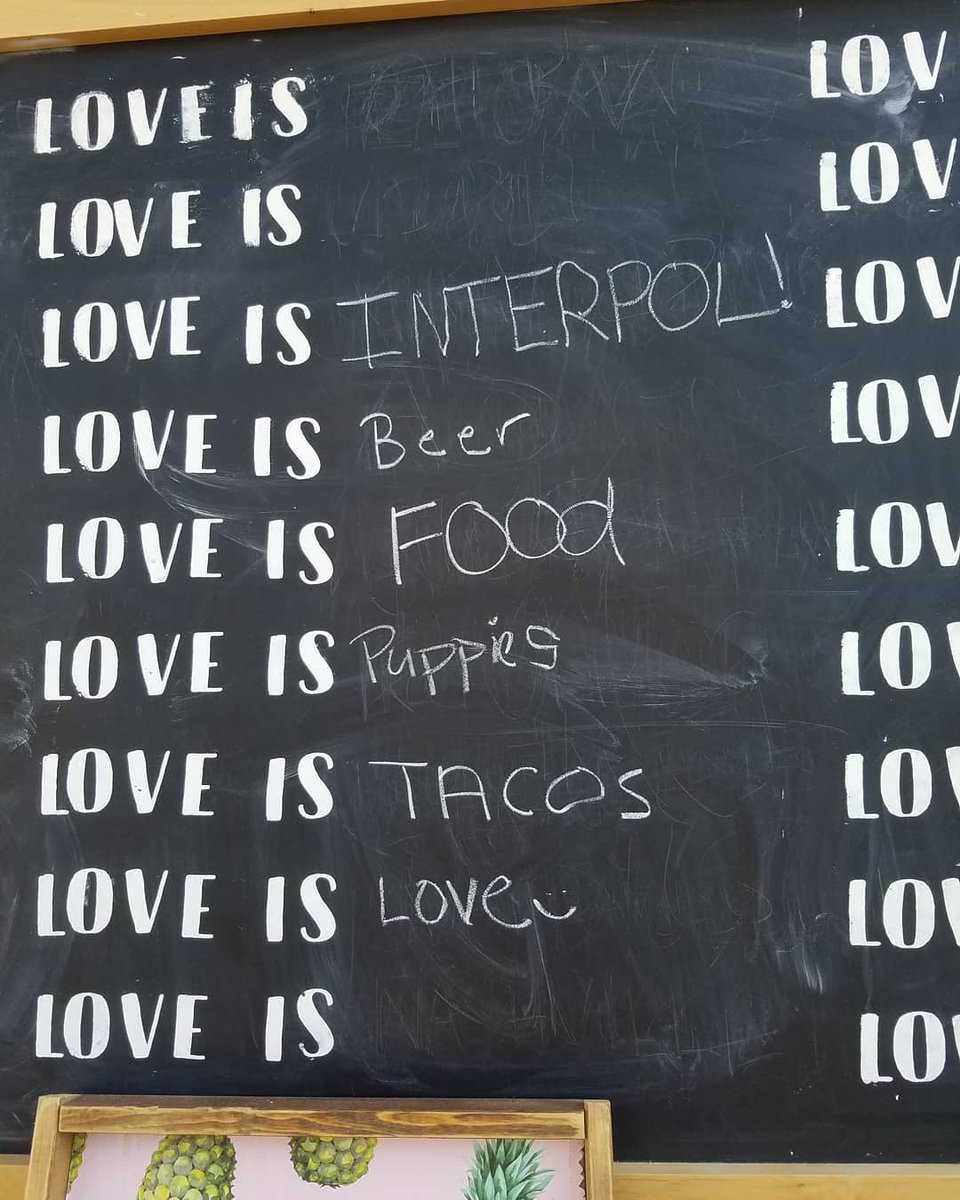 LOVE IS
LOV
LOVE IS
LOV
LOVE IS INTERPOL!
LOV
LOVE IS Beer
LOV
LOVE IS FOOd
LOV
LOVE IS Puppies
LOV
LOVE IS TACOS
LOV
LOVE IS LOVE
LOV
LOVE IS
LOV